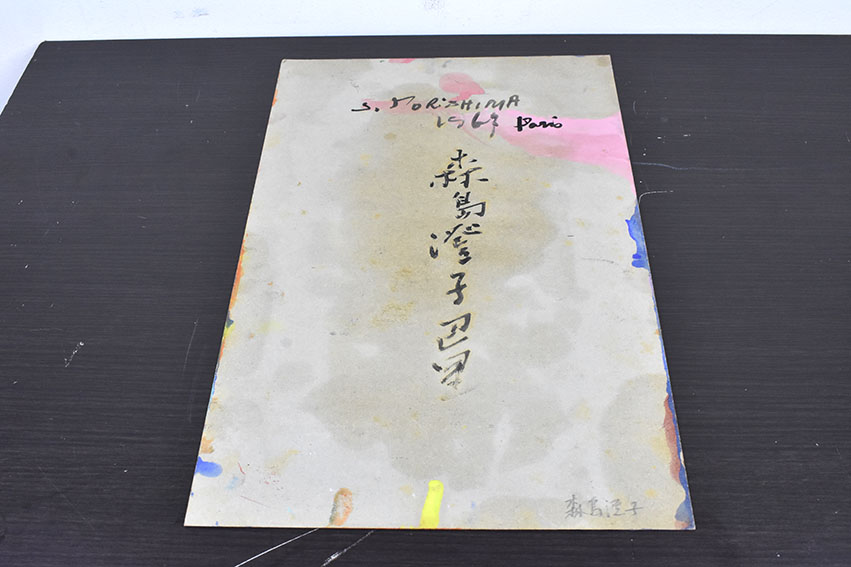 S. MORISHIMA
1967 Paris
森島澄子巴里
森島澄子